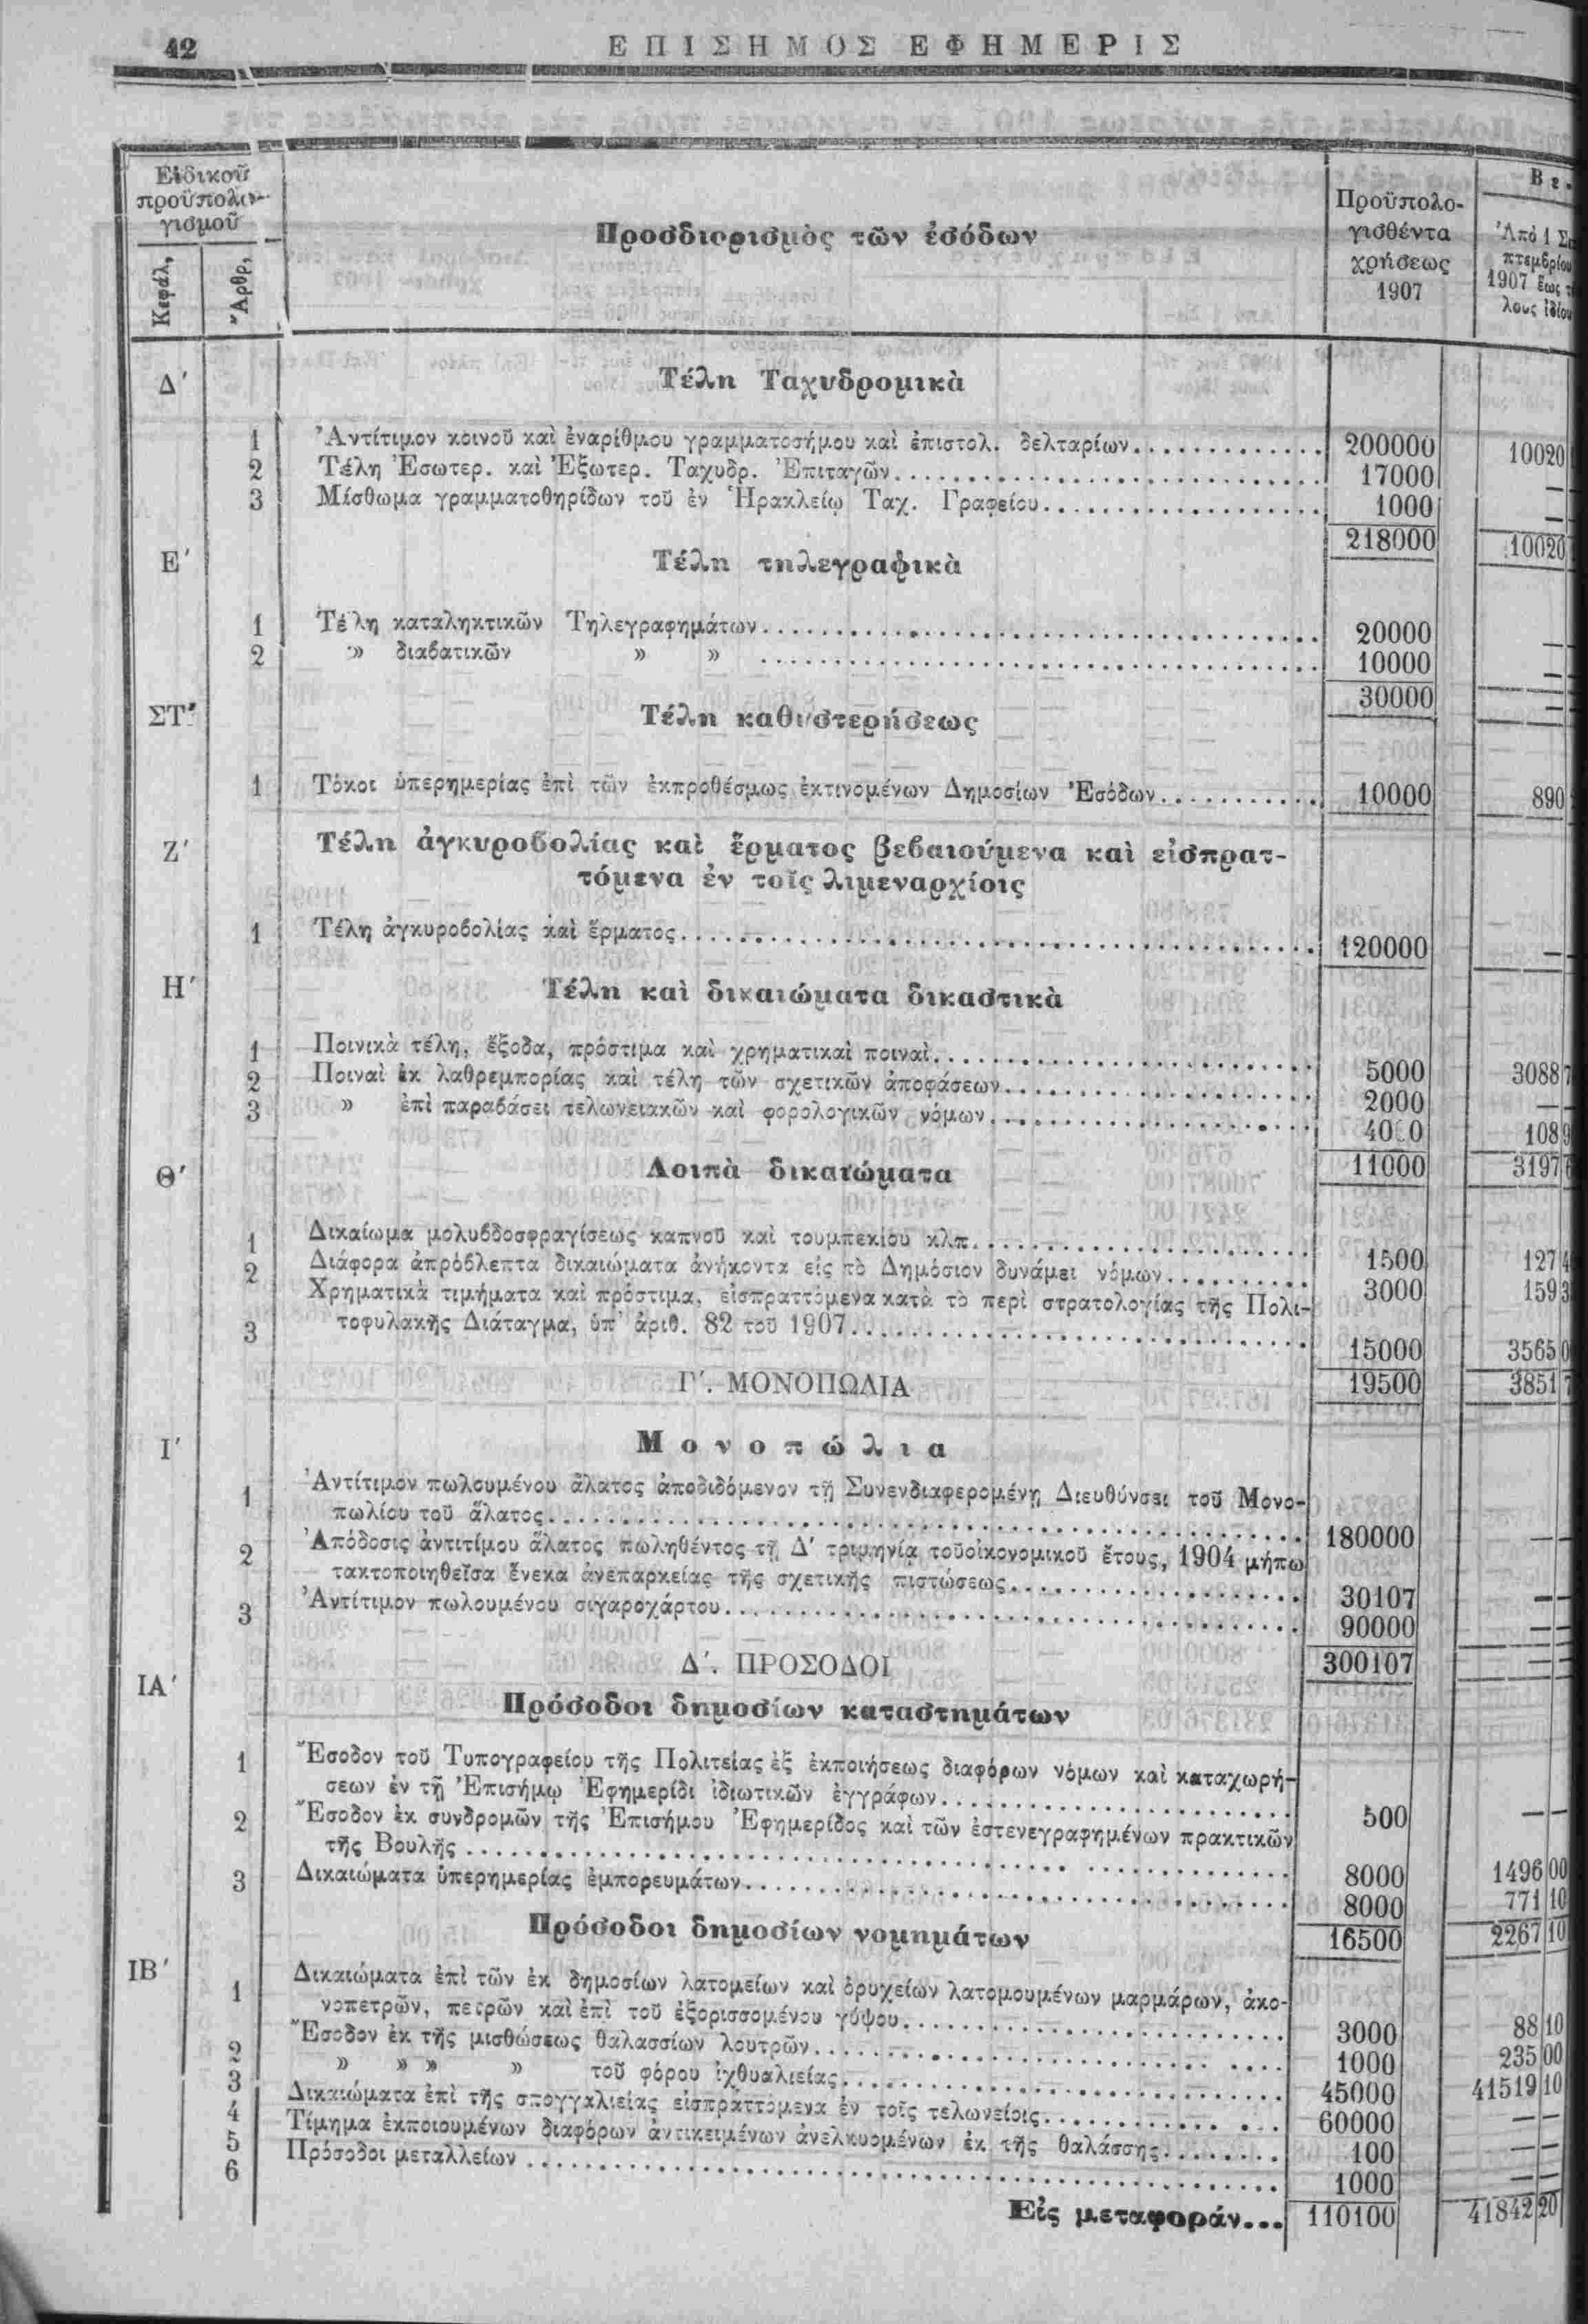 42 ΕΠΙΣΗΜΟΣ ΕΦΗΜΕΡΙΣ
Εἰδικοῦ προϋπολογισμοῦ
Κεφάλ, Ἄρθρ,
Προσδιορισμὸς τῶν ἐσόδων
Προϋπολο-
γισθέντα
χρήσεως
1907
Βε
Ἀπὸ 1 Σε
πτεμβρίου
1907 ἕως τέ
λους ἰδίου
Δ′ Τέλη Ταχυδρομικὰ
1 Ἀντίτιμον κοινοῦ καὶ ἐναρίθμου γραμματοσήμου καὶ ἐπιστολ. δελταρίων............. 200000 10020
2 Τέλη Ἐσωτερ. καὶ Ἐξωτερ. Ταχυδρ. Ἐπιταγῶν............. 17000 —
3 Μίσθωμα γραμματοθηρίδων τοῦ ἐν Ἡρακλείῳ Ταχ. Γραφείου............. 1000 —
218000 10020
Ε′ Τέλη τηλεγραφικὰ
1 Τέλη καταληκτικῶν Τηλεγραφημάτων............. 20000 —
2 » διαβατικῶν » » ............. 10000 —
30000 —
ΣΤ′ Τέλη καθυστερήσεως
1 Τόκοι ὑπερημερίας ἐπὶ τῶν ἐκπροθέσμως ἐκτινομένων Δημοσίων Ἐσόδων............ 10000 890
Ζ′ Τέλη ἀγκυροβολίας καὶ ἕρματος βεβαιούμενα καὶ εἰσπρατ-
τόμενα ἐν τοῖς λιμεναρχίοις
1 Τέλη ἀγκυροβολίας καὶ ἕρματος............. 120000 —
Η′ Τέλη καὶ δικαιώματα δικαστικὰ
1 Ποινικὰ τέλη, ἔξοδα, πρόστιμα καὶ χρηματικαὶ ποιναὶ............. 5000 3088 7
2 Ποιναὶ ἐκ λαθρεμπορίας καὶ τέλη τῶν σχετικῶν ἀποφάσεων............. 2000 — —
3 » ἐπὶ παραβάσει τελωνειακῶν καὶ φορολογικῶν νόμων............. 4000 108 9
11000 3197 6
Θ′ Λοιπὰ δικαιώματα
1 Δικαίωμα μολυβδοσφραγίσεως καπνοῦ καὶ τουμπεκίου κλπ............. 1500 127 4
2 Διάφορα ἀπρόβλεπτα δικαιώματα ἀνήκοντα εἰς τὸ Δημόσιον δυνάμει νόμων.......... 3000 159 3
Χρηματικὰ τιμήματα καὶ πρόστιμα, εἰσπραττόμενα κατὰ τὸ περὶ στρατολογίας τῆς Πολι-
3 τοφυλακῆς Διάταγμα, ὑπ' ἀριθ. 82 τοῦ 1907............. 15000 3565 0
19500 3851 7
Γ′. ΜΟΝΟΠΩΛΙΑ
Ι′ Μονοπώλια
1 Ἀντίτιμον πωλουμένου ἅλατος ἀποδιδόμενον τῇ Συνενδιαφερομένῃ Διευθύνσει τοῦ Μονο-
πωλίου τοῦ ἅλατος............. 180000 — —
2 Ἀπόδοσις ἀντιτίμου ἅλατος πωληθέντος τῇ Δ′ τριμηνίᾳ τοῦ οἰκονομικοῦ ἔτους, 1904 μήπω
τακτοποιηθεῖσα ἕνεκα ἀνεπαρκείας τῆς σχετικῆς πιστώσεως............. 30107 — —
3 Ἀντίτιμον πωλουμένου σιγαροχάρτου............. 90000 — —
300107 — —
Δ′. ΠΡΟΣΟΔΟΙ
ΙΑ′ Πρόσοδοι δημοσίων καταστημάτων
1 Ἔσοδον τοῦ Τυπογραφείου τῆς Πολιτείας ἐξ ἐκποιήσεως διαφόρων νόμων καὶ καταχωρή-
σεων ἐν τῇ Ἐπισήμῳ Ἐφημερίδι ἰδιωτικῶν ἐγγράφων............. 500 — —
2 Ἔσοδον ἐκ συνδρομῶν τῆς Ἐπισήμου Ἐφημερίδος καὶ τῶν ἐστενεγραφημένων πρακτικῶν
τῆς Βουλῆς............. 8000 1496 00
3 Δικαιώματα ὑπερημερίας ἐμπορευμάτων............. 8000 771 10
16500 2267 10
Πρόσοδοι δημοσίων νομημάτων
ΙΒ′
1 Δικαιώματα ἐπὶ τῶν ἐκ δημοσίων λατομείων καὶ ὀρυχείων λατομουμένων μαρμάρων, ἀκο-
νοπετρῶν, πετρῶν καὶ ἐπὶ τοῦ ἐξορισσομένου γύψου............. 3000 88 10
2 Ἔσοδον ἐκ τῆς μισθώσεως θαλασσίων λουτρῶν............. 1000 235 00
3 » » » » τοῦ φόρου ἰχθυαλιείας............. 45000 41519 10
4 Δικαιώματα ἐπὶ τῆς σπογγαλιείας εἰσπραττόμενα ἐν τοῖς τελωνείοις............. 60000 — —
5 Τίμημα ἐκποιουμένων διαφόρων ἀντικειμένων ἀνελκυομένων ἐκ τῆς θαλάσσης......... 100 — —
6 Πρόσοδοι μεταλλείων............. 1000 — —
Εἰς μεταφοράν... 110100 41842 20